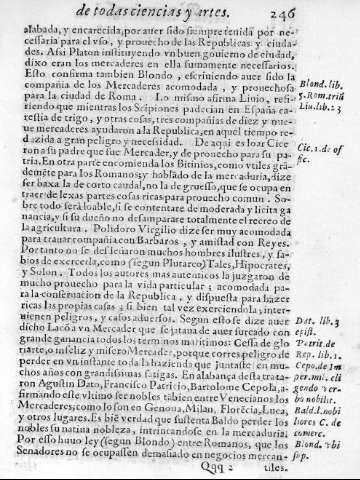 de todas ciencias y artes. 246
alabada, y encarecida, por auer sido siempre tenida por ne-
cessaria para el vso, y prouecho de las Republicas y ciuda-
des. Assi Platon instituyendo vn buen gouierno de ciudad,
dixo eran los mercaderes en ella summente necessarios.
Esto confirma tambien Blondo, escriuiendo auer sido la
compañia de los Mercaderes acomodada, y prouechosa
para la ciudad de Roma. Lo mismo afirma Liuio, refi-
riendo que mientras los Scipiones padecian en España ca-
restia de trigo, y otras cosas, tres compañias de diez y nue-
ue mercaderes ayudaron a la Republica, en aquel tiempo re-
dazida a gran peligro y necessidad. De aqui es loar Cice
ron a su padre que fue Mercader, y de prouecho para su pa-
tria. En otra parte encomienda los Bitinios, como vtiles gran-
demete para los Romanos; y hablado de la mercaduria, dize
ser baxa la de corto caudal, no la de gruesso, que se ocupa en
traer de lexas partes cosas ricas para prouecho comun. So-
bre todo será loable, si se contentare de moderada y licita ga
nancia, y si su dueño no desamparare totalmente el recreo de
la agricultura. Polidoro Virgilio dize ser muy acomodada
para trauar compañia con Barbaros, y amistad con Reyes.
Por tanto no se desdeñaron muchos hombres ilustres, y sa-
bios de exercerla, como (segun Plutarco) Tales, Hipocrates,
y Solon. Todos los autores mas autenticos la juzgaron de
mucho prouecho para la vida particular; acomodada pa-
ra la conseruacion de la Republica, y dispuesta para hazer
ricas las propias casas; si bien tal vez exerciendola, inter-
uienen peligros, y casos aduersos. Segun esto se dize auer
dicho Lacõ a vn Mercader que se jataua de auer surcado con
grande ganancia todos los terminos maritimos: Cessa de glo
riarte, o infeliz y misero Mercader, porque corres peligro de
perder en vn instante toda la hazienda que juntaste en mu-
chos años con grandissimas fatigas. En alabança della trata-
ron Agustin Dato, Francisco Patricio, Bartolome Cepola, a-
firmando este vltimo ser nobles tãbien entre Venecianos los
Mercaderes; como lo son en Genoua, Milan, Florẽcia, Luca,
y otros lugares. Es biẽ verdad que sustenta Baldo perder los
nobles su natiua nobleza, intrincandose en la mercaduria.
Por esso huuo ley (segun Blondo) entre Romanos, que los
Senadores no se ocupassen demasiado en negocios mercan-
Qqq 2 tiles.
Blond. lib.
5. Rom. triũ
Liu. lib. 23
Cic. 1. de of
fic.
Dat. lib. 3
epist.
Patrit. de
Rep. lib. 1.
Cepo. de Im
per. mi. eli
gendo ver-
bo nobilit.
Bald. l. nobi
liores C. de
comerc.
Blond. vbi
sup.